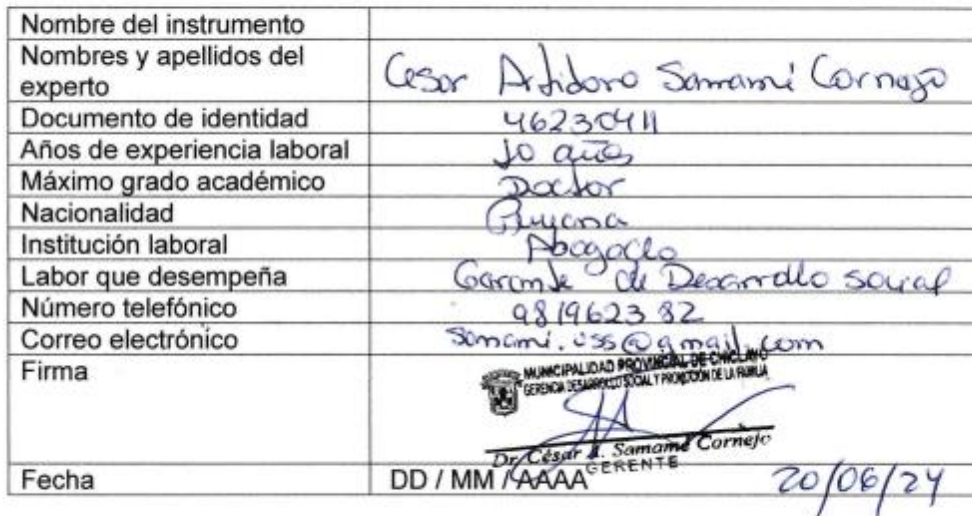 Nombre del instrumento
Nombres y apellidos del experto Cesar Artidoro Samamé Cornejo
Documento de identidad 46230411
Años de experiencia laboral 10 años
Máximo grado académico Doctor
Nacionalidad Peruana
Institución laboral Abogado
Labor que desempeña Gerente de Desarrollo social
Número telefónico 981962382
Correo electrónico samami.uss@gmail.com
Firma
MUNICIPALIDAD PROVINCIAL DE CHICLAYO
GERENCIA DESARROLLO SOCIAL Y PROMOCIÓN DE LA FAMILIA
Dr. César A. Samamé Cornejo
GERENTE
Fecha DD / MM / AAAA 20/06/24